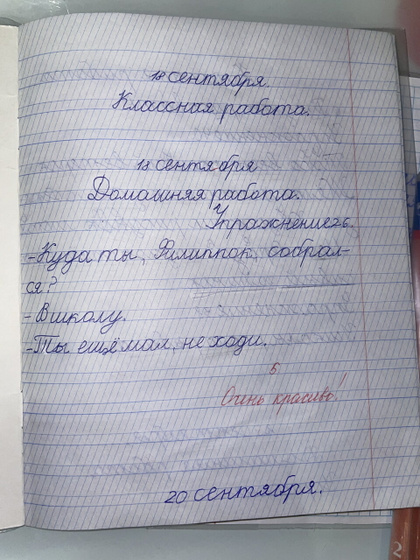 18 сентября.
Классная работа.
18 сентября
Домашняя работа.
Упражнение 26.
-Куда ты, Филиппок, собрал-
ся?
- В школу.
-Ты ещё мал, не ходи.
5
Очень красиво!
20 сентября.